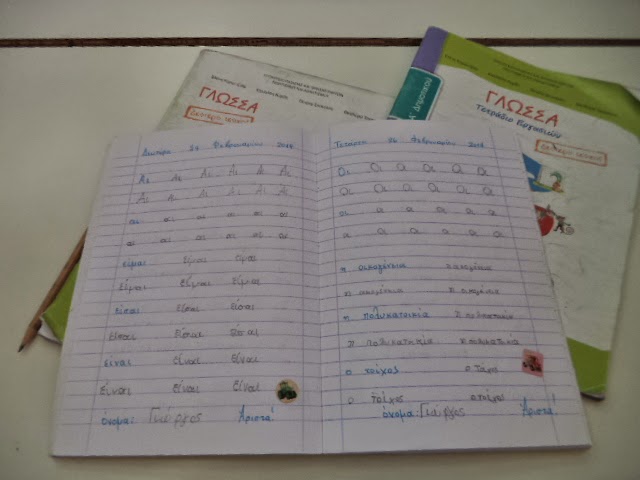 ΓΛΩΣΣΑ
Α΄ Δημοτικού
ΓΛΩΣΣΑ
Τετράδιο Εργασιών
Δευτέρα 24 Φεβρουαρίου 2014
Αι Αι Αι Αι Αι Αι
Αι Αι Αι Αι Αι Αι
αι αι αι αι αι αι
αι αι αι αι αι αι
είμαι είμαι είμαι
είμαι είμαι είμαι
είσαι είσαι είσαι
είσαι είσαι είσαι
είναι είναι είναι
είναι είναι είναι
όνομα: Γιώργος Άριστα!
Τετάρτη 26 Φεβρουαρίου 2014
Οι Οι Οι Οι Οι Οι
Οι Οι Οι Οι Οι Οι
οι οι οι οι οι οι
οι οι οι οι οι οι
η οικογένεια η οικογένεια
η οικογένεια η οικογένεια
η πολυκατοικία
η πολυκατοικία
ο τοίχος
ο τοίχος
όνομα: Γιώργος Άριστα!